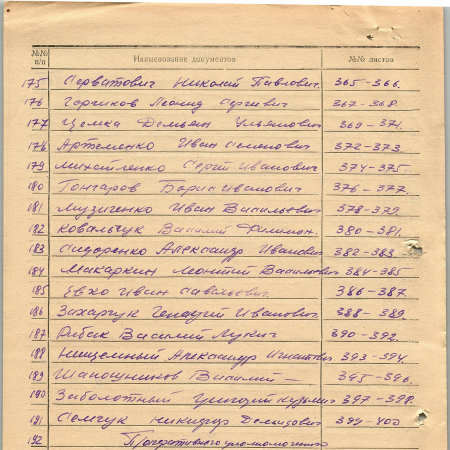 №№ п/п Наименование документов №№ листов
175 Серватович Николай Павлович. 365-366.
176 Горшков Леонид Сергевич 367-368.
177 Цомка Демьян Ульянович 369-371.
178 Артеменко Иван Семенович 372-373.
179 Михайленко Сергей Иванович 374-375.
180 Гончаров Борис Иванович 376-377.
181 Музыченко Иван Васильевич 378-379.
182 Ковальчук Василий Филимон. 380-381.
183 Сидоренко Александр Иванович 382-383.
184 Макаркин Леонтий Васильевич 384-385
185 Евхо Иван Савельевич. 386-387.
186 Захарчук Геннадий Иванович 388-389.
187 Рибак Василий Лукич 390-392.
188 Нищемный Александр Игнатович 393-394.
189 Шапошников Василий — 395-396.
190 Заболотный Григорий Кузьмич 397-398.
191 Семчук Никифор Демидович 399-400.
192 Оперативного уполномоченного